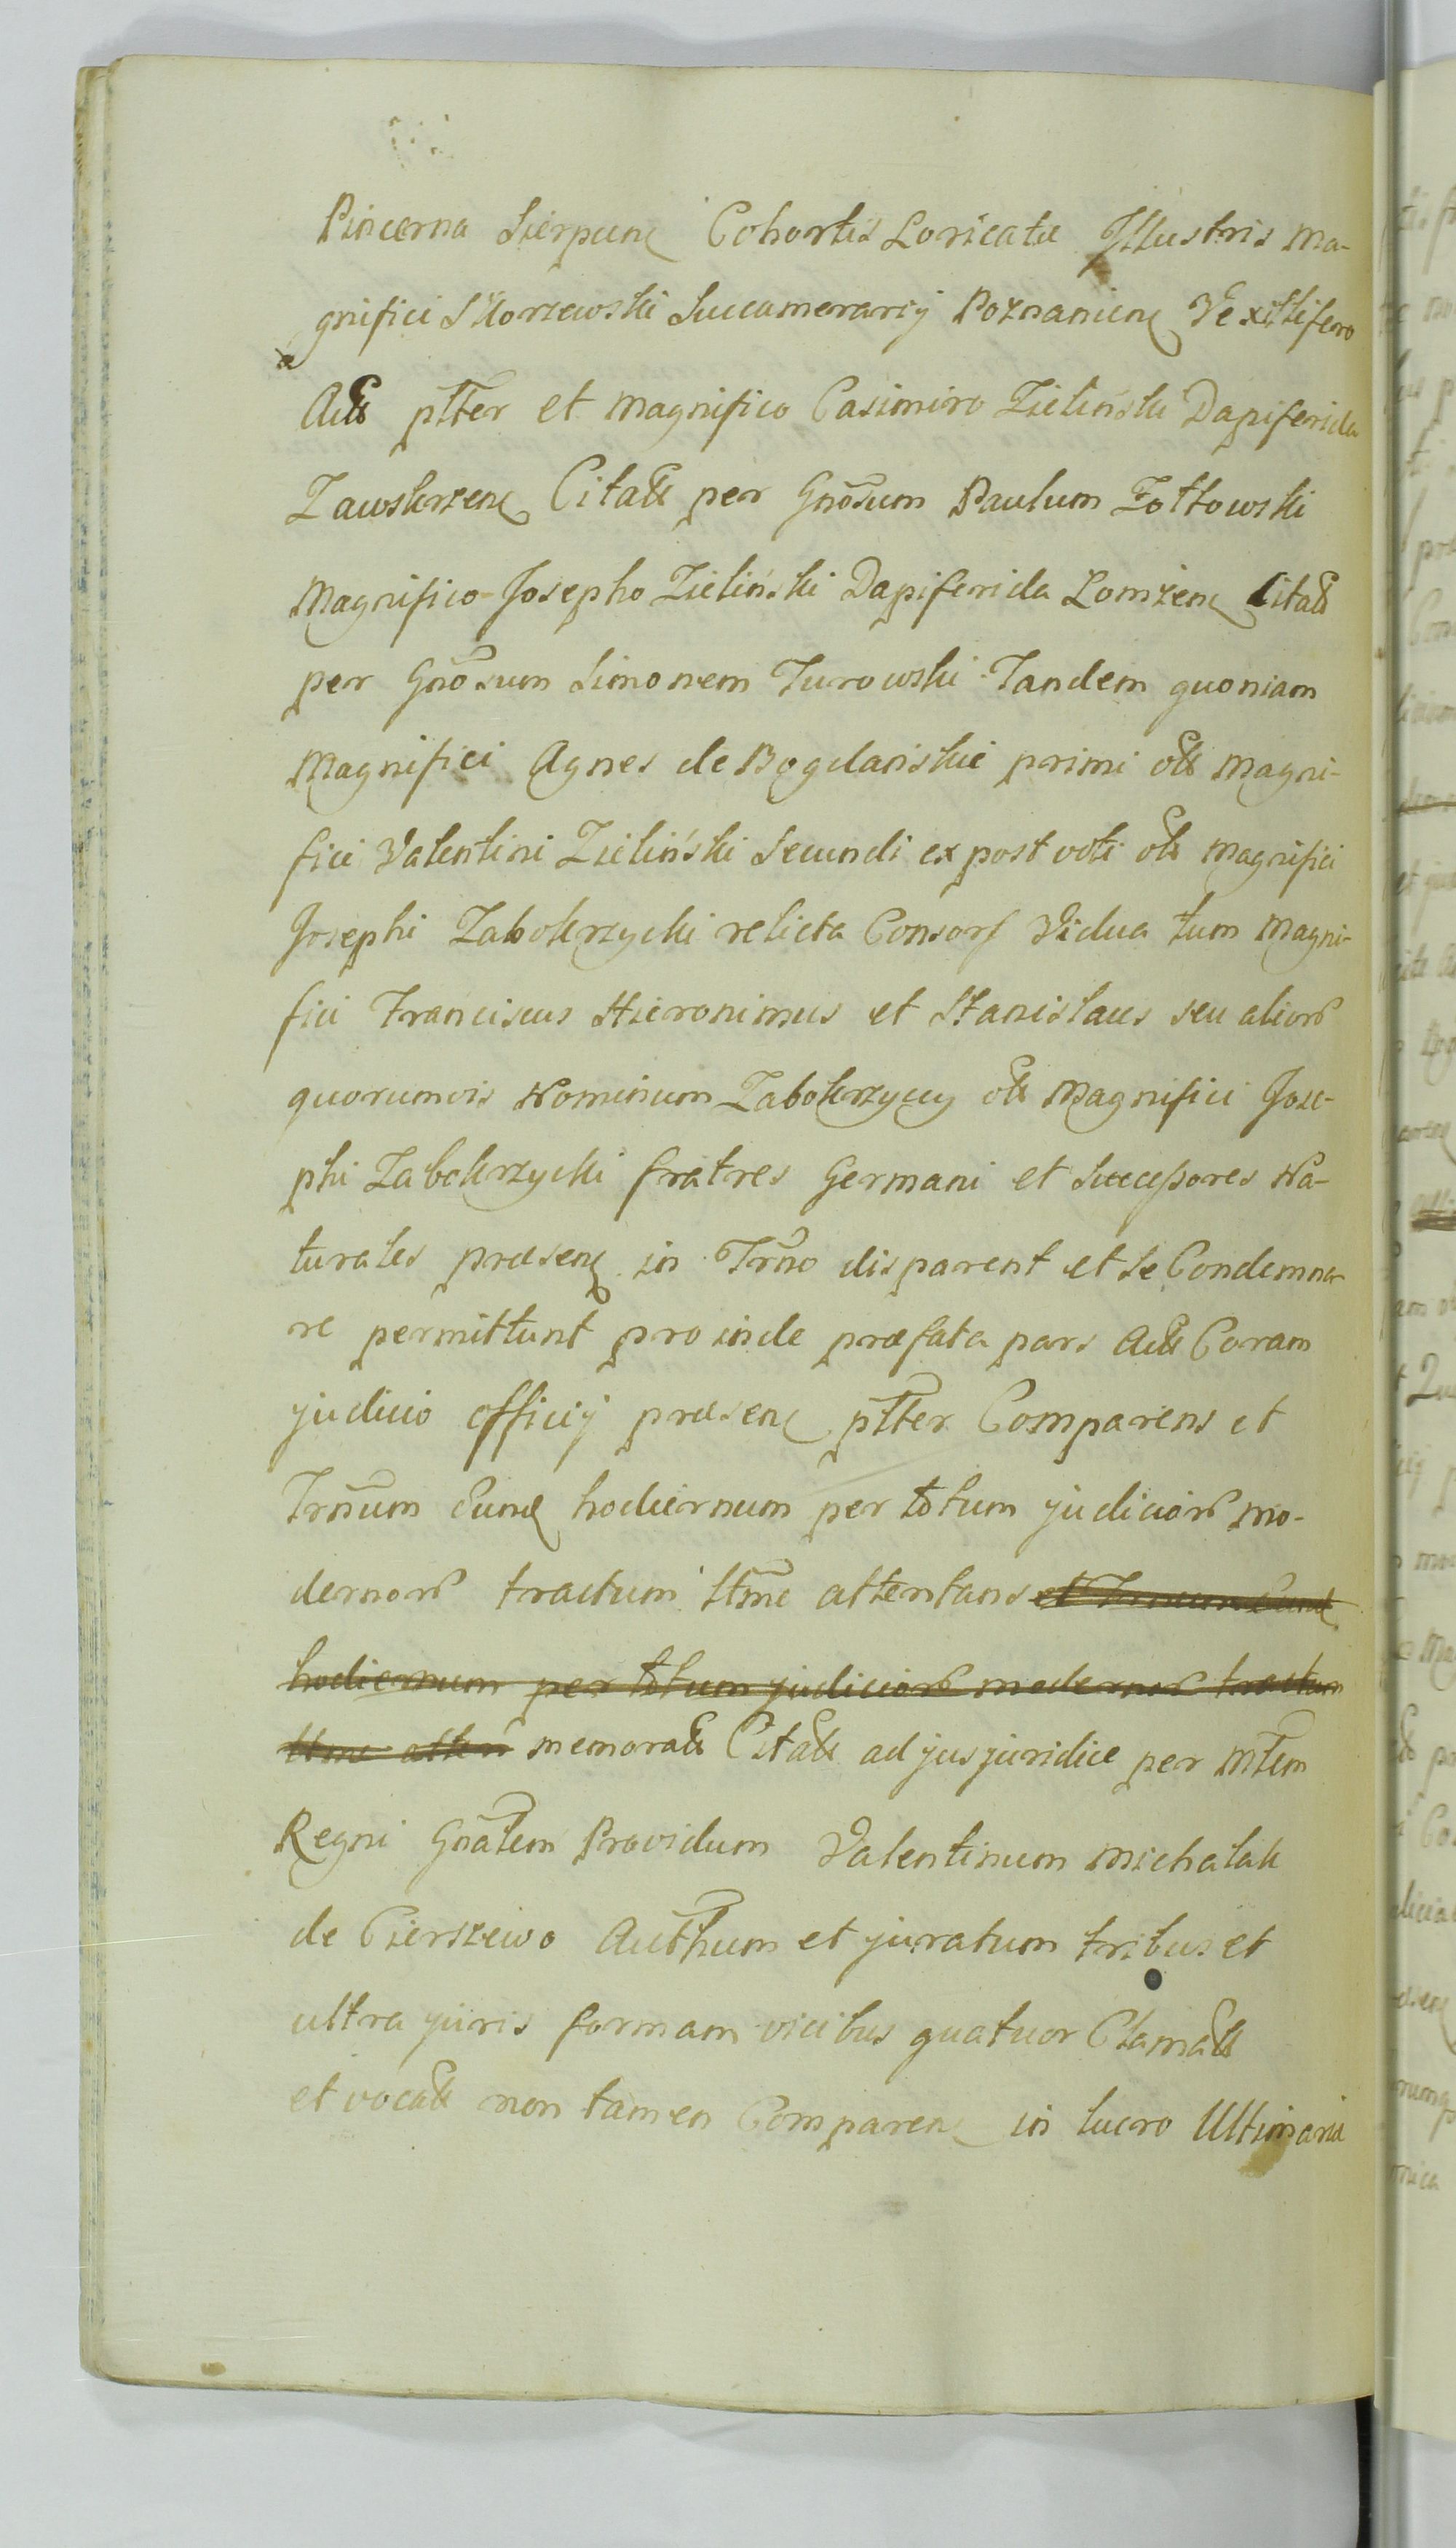 Pincerna Sierpcenẽ Cohortis Loricatæ Illustris Ma-
gnifici Skorzewski Succamerarij Poznanienẽ Vexillifero
a
Actt ptter et Magnifico Casimiro Zieliński Dapiferida
Zawskrzenẽ Citatt per Gnõsum Paulum Zołtowski
Magnifico Josepho Zieliński Dapiferida Łomżenẽ Citatt
per Gnõsum Simonem Turowski Tandem quoniam
Magnifici Agnes de Bogdańskie primi ott Magni-
fici Valentini Zieliński Secundi ex post voti ott Magnifici
Josephi Zabokrzycki relicta Consors Vidua tum Magni-
fici Franciscus Hieronimus et Stanislaus seu alior̃
quorumvis Nominum Zabokrzyccy ott Magnifici Jose-
phi Zabokrzycki fratres Germani et Successores Na-
turales præsenẽ in Trño disparent et se Condemna-
re permittunt pro inde præfata pars Actt Coram
judicio officij præsenẽ ptter Comparens et
Trñum Eundẽ hodiernum per totum judicior̃ mo-
dernor̃ tractum ttme attentans et Trñum Eundẽ
hodiernum per totum judicior̃ modernor̃ tractum
ttme atten memoratt Citatt ad jus juridice per Mtem
Regni Gnãtem Providum Valentinum Michalak
de Pierszewo Autthum et juratum tribus et
ultra juris formam vicibus quatuor Clamatt
et vocatt non tamen Comparenẽ in lucro Ultimaria